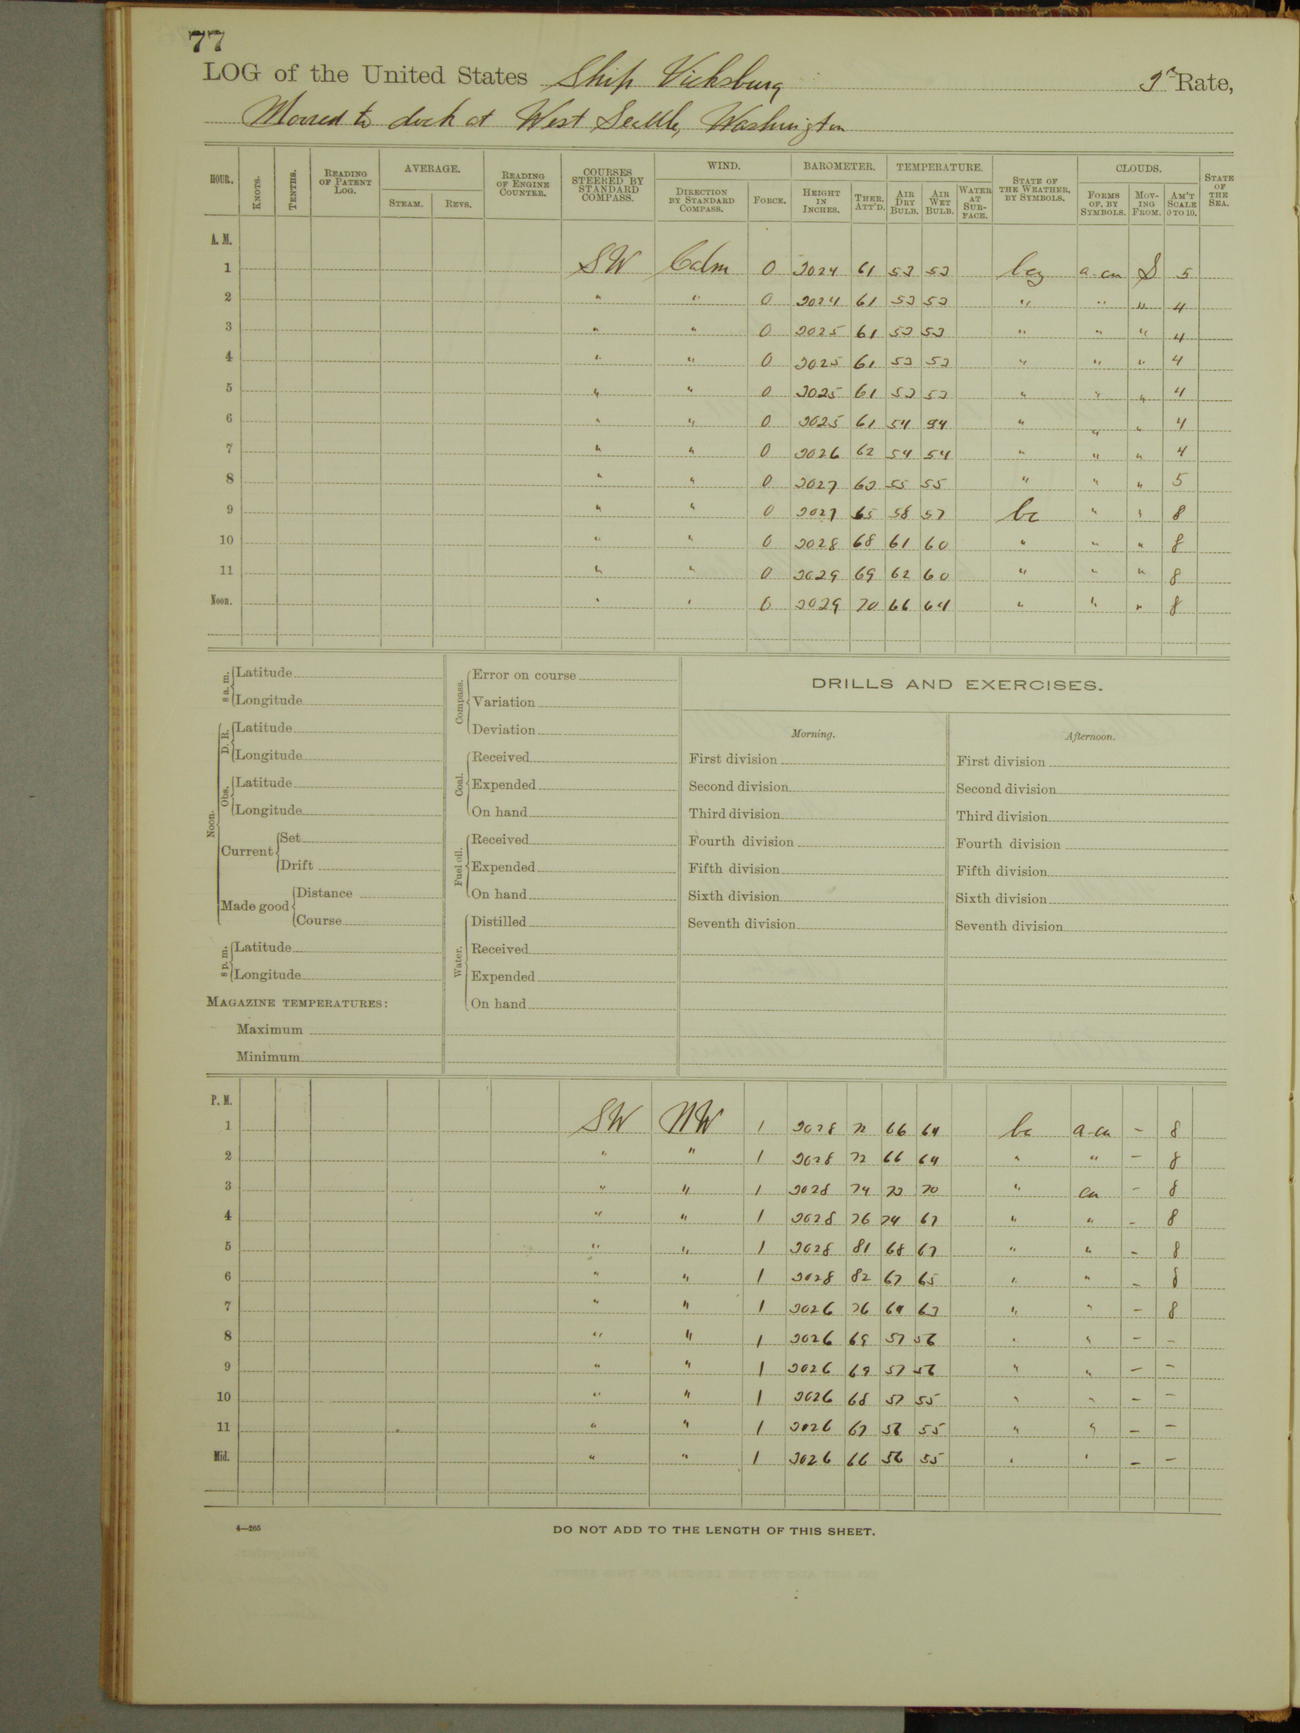 77
LOG of the United States Ship Vicksburg Rate,
Moored to dock at West Seattle, Washington
HOUR. KNOTS. TENTHS. READING OF PATENT LOG. AVERAGE. STEAM. REVS. READING OF ENGINE COUNTER. COURSES STEERED BY STANDARD COMPASS. WIND. DIRECTION BY STANDARD COMPASS. FORCE. BAROMETER. HEIGHT IN INCHES. THER. ATT'D. TEMPERATURE. AIR DRY BULB. AIR WET BULB. WATER AT SURFACE. STATE OF THE WEATHER, BY SYMBOLS. CLOUDS. FORMS OF, BY SYMBOLS. MOVING FROM. AM'T SCALE 0 TO 10. STATE OF THE SEA.
A. M.
1 SW Calm 0 3024 61 53 53 bcz a-cu S 5
2 " " 0 3024 61 53 53 " " " 4
3 " " 0 3025 61 53 53 " " " 4
4 " " 0 3025 61 53 53 " " " 4
5 " " 0 3025 61 53 53 " " " 4
6 " " 0 3025 61 54 54 " " " 4
7 " " 0 3026 62 54 54 " " " 4
8 " " 0 3027 63 55 55 " " " 5
9 " " 0 3027 65 58 57 bc " " 8
10 " " 0 3028 68 61 60 " " " 8
11 " " 0 3029 69 62 60 " " " 8
Noon. " " 0 3029 70 66 64 " " " 8
8 a. m. Latitude
Longitude
Noon. D. R. Latitude
Longitude
Obs. Latitude
Longitude
Current Set
Drift
Made good Distance
Course
8 p. m. Latitude
Longitude
MAGAZINE TEMPERATURES:
Maximum
Minimum
Compass. Error on course
Variation
Deviation
Coal. Received
Expended
On hand
Fuel oil. Received
Expended
On hand
Water. Distilled
Received
Expended
On hand
DRILLS AND EXERCISES.
Morning.
First division
Second division
Third division
Fourth division
Fifth division
Sixth division
Seventh division
Afternoon.
First division
Second division
Third division
Fourth division
Fifth division
Sixth division
Seventh division
P. M.
1 SW NW 1 3028 72 66 64 bc a-cu – 8
2 " " 1 3028 72 66 64 " " – 8
3 " " 1 3028 74 70 " cu – 8
4 " " 1 3028 76 74 67 " " – 8
5 " " 1 3028 81 68 67 " " – 8
6 " " 1 3028 82 67 65 " " – 8
7 " " 1 3026 76 64 63 " " – 8
8 " " 1 3026 69 57 56 " " – –
9 " " 1 3026 69 57 56 " " – –
10 " " 1 3026 68 57 55 " " – –
11 " " 1 3026 67 56 55 " " – –
Mid. " " 1 3026 66 56 55 " " – –
4—265
DO NOT ADD TO THE LENGTH OF THIS SHEET.